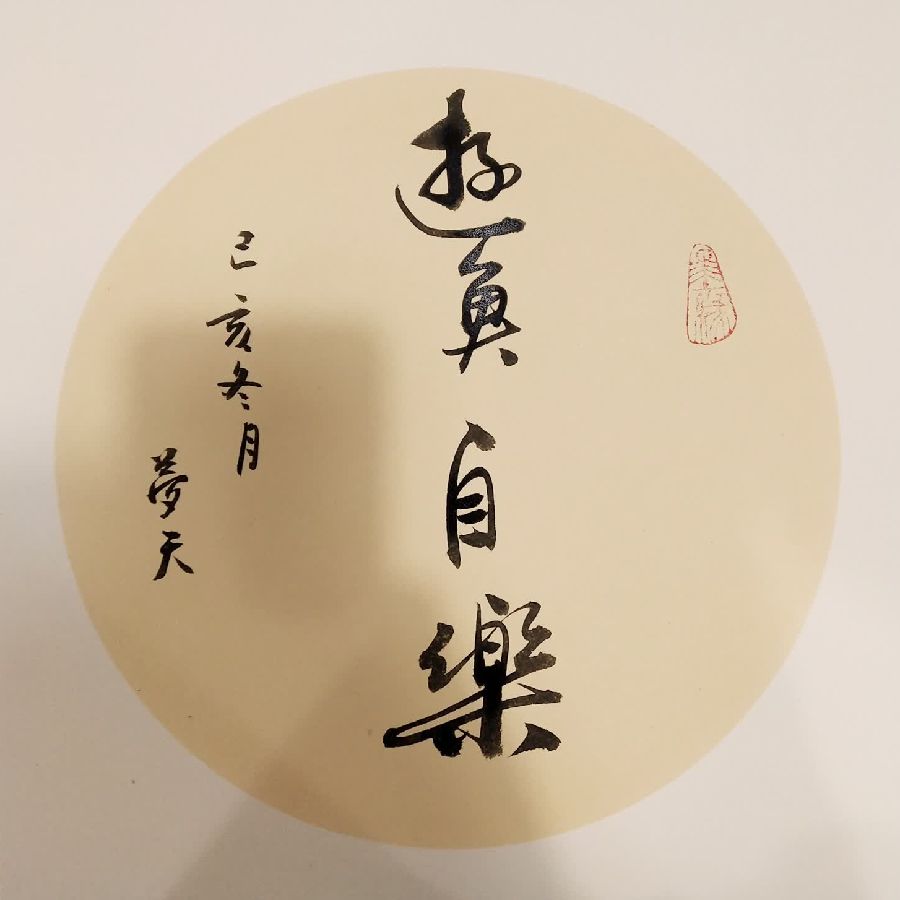 遊魚自樂
己亥冬月
夢天